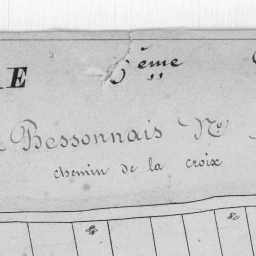 RE
ème
Bessonnais No
chemin de la croix